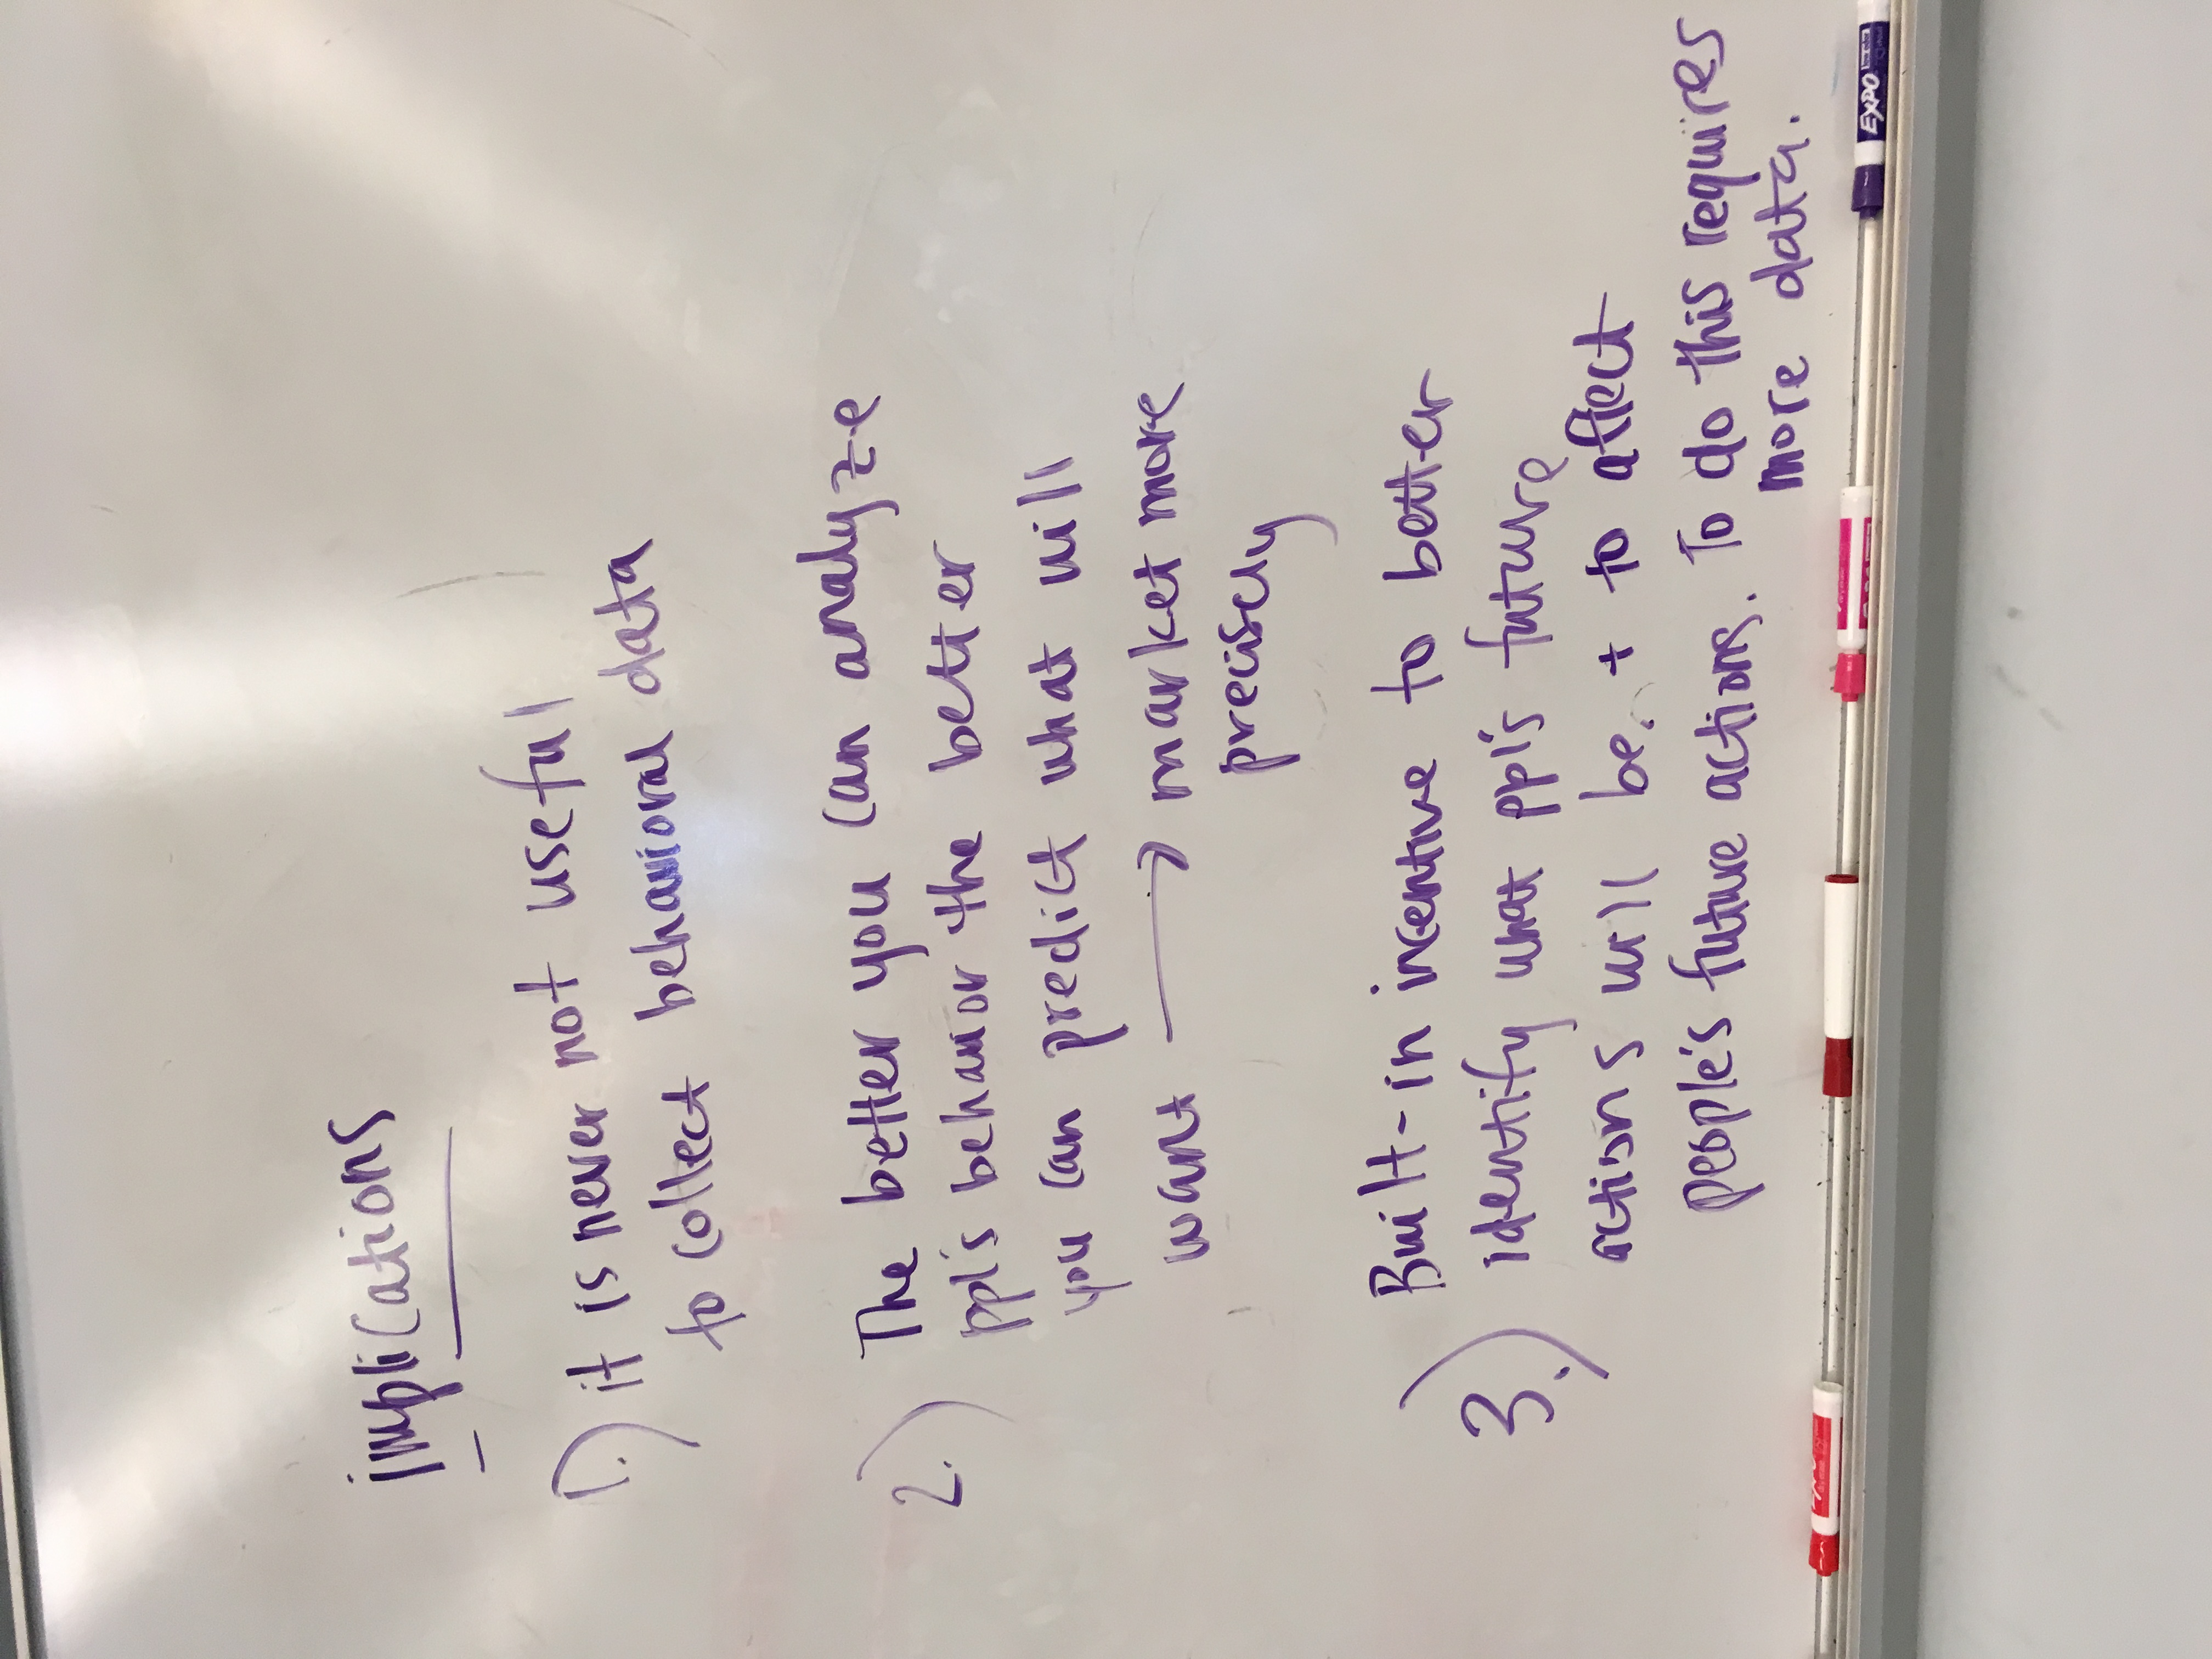 implications
1.) it is never not useful
to collect behavioral data
2.) The better you can analyze
ppl's behavior the better
you can predict what will
want → market more
precisely
3.) Built-in incentive to better
identify what ppl's future
actions will be. + to affect
people's future actions. To do this requires
more data.
EXPO